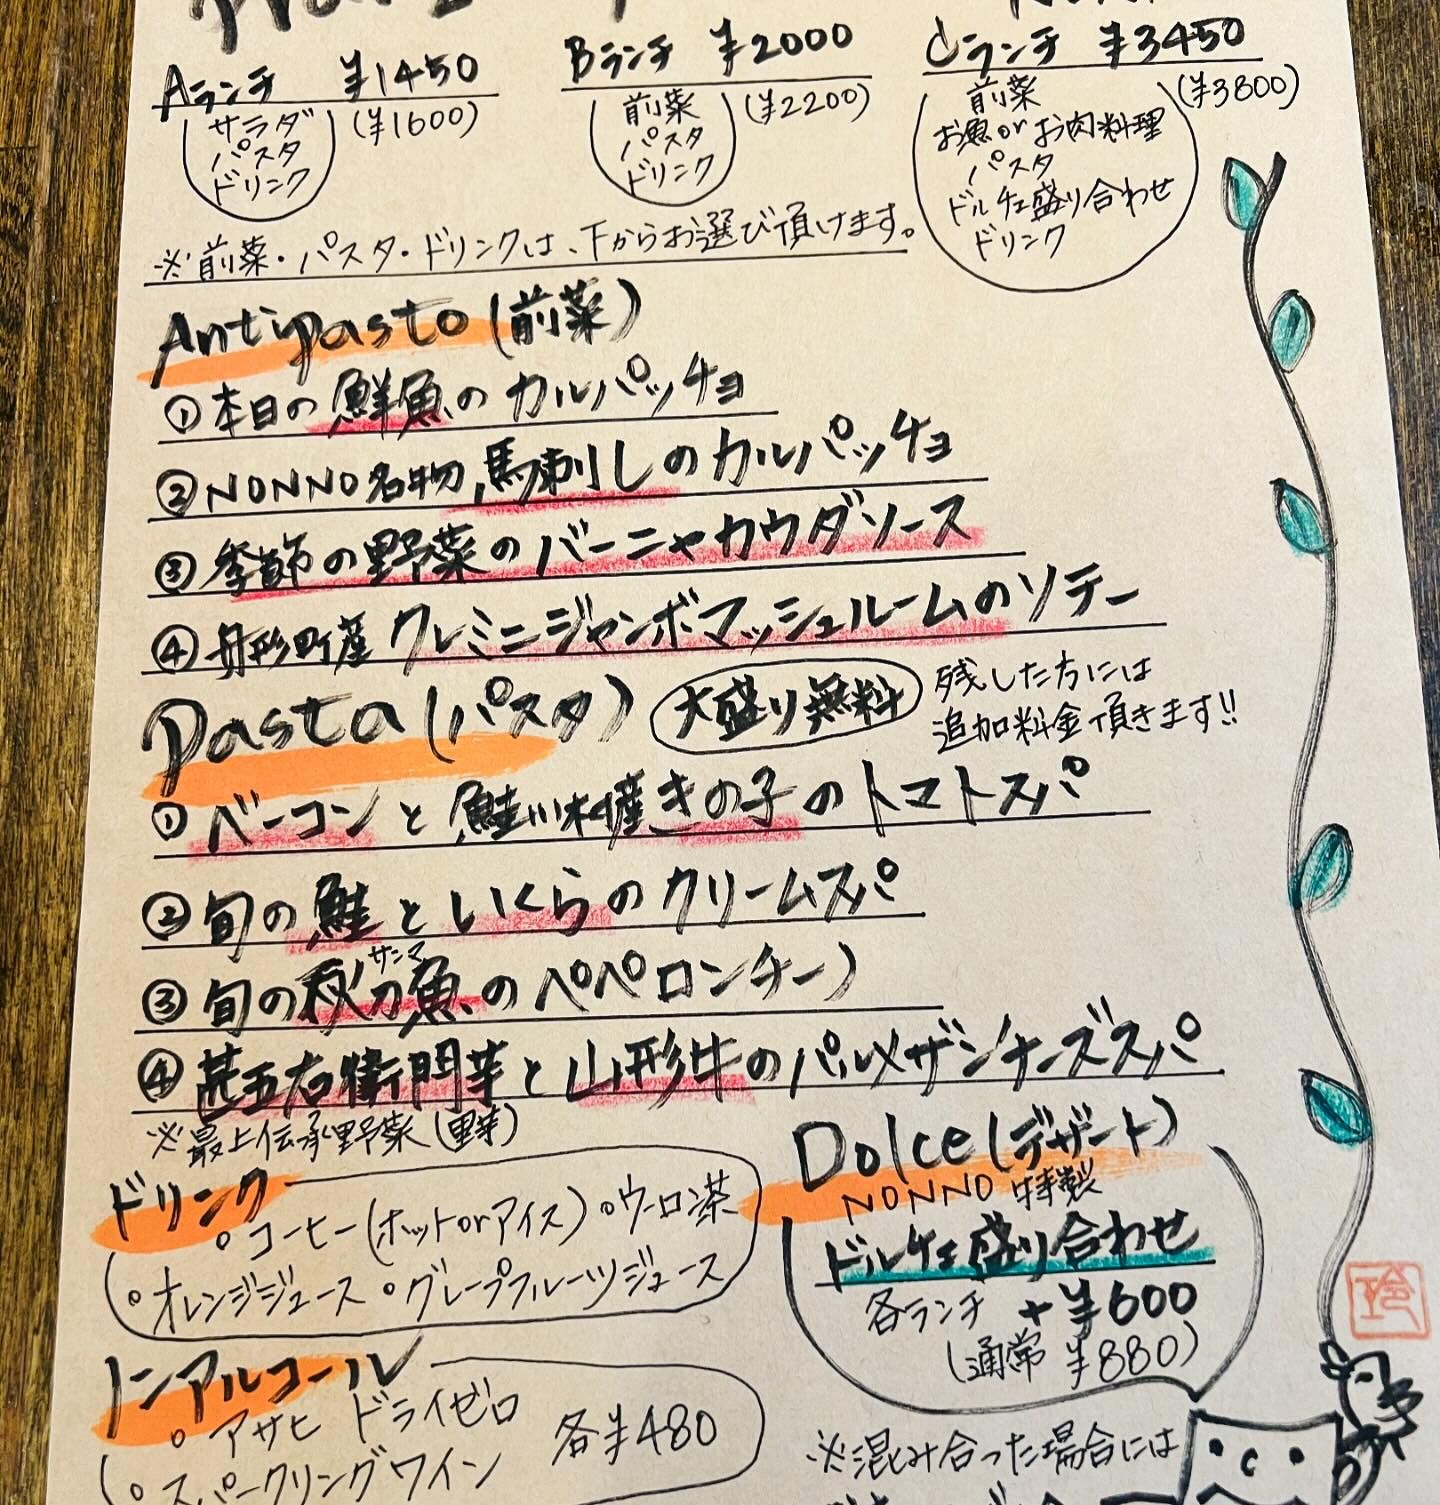 Aランチ ¥1450
(¥1600)
サラダ
パスタ
ドリンク
Bランチ ¥2000
(¥2200)
前菜
パスタ
ドリンク
Cランチ ¥3450
(¥3800)
前菜
お魚orお肉料理
パスタ
ドルチェ盛り合わせ
ドリンク
※前菜・パスタ・ドリンクは、下からお選び頂けます。
Antipasto(前菜)
①本日の鮮魚のカルパッチョ
②NONNO名物 馬刺しのカルパッチョ
③季節の野菜のバーニャカウダソース
④舟形町産 クレミニジャンボマッシュルームのソテー
Pasta(パスタ) 大盛り無料
残した方には
追加料金頂きます!!
①ベーコンと鮭川村産きの子のトマトスパ
②旬の鮭といくらのクリームスパ
サンマ
③旬の秋刀魚のペペロンチーノ
④甚五右衛門芋と山形牛のパルメザンチーズスパ
※最上伝承野菜(里芋)
ドリンク
・コーヒー(ホットorアイス)・ウーロン茶
・オレンジジュース・グレープフルーツジュース
Dolce(デザート)
NONNO特製
ドルチェ盛り合わせ
各ランチ +¥600
(通常 ¥880)
玲
ノンアルコール
・アサヒ ドライゼロ
・スパークリングワイン
各¥480
※混み合った場合には